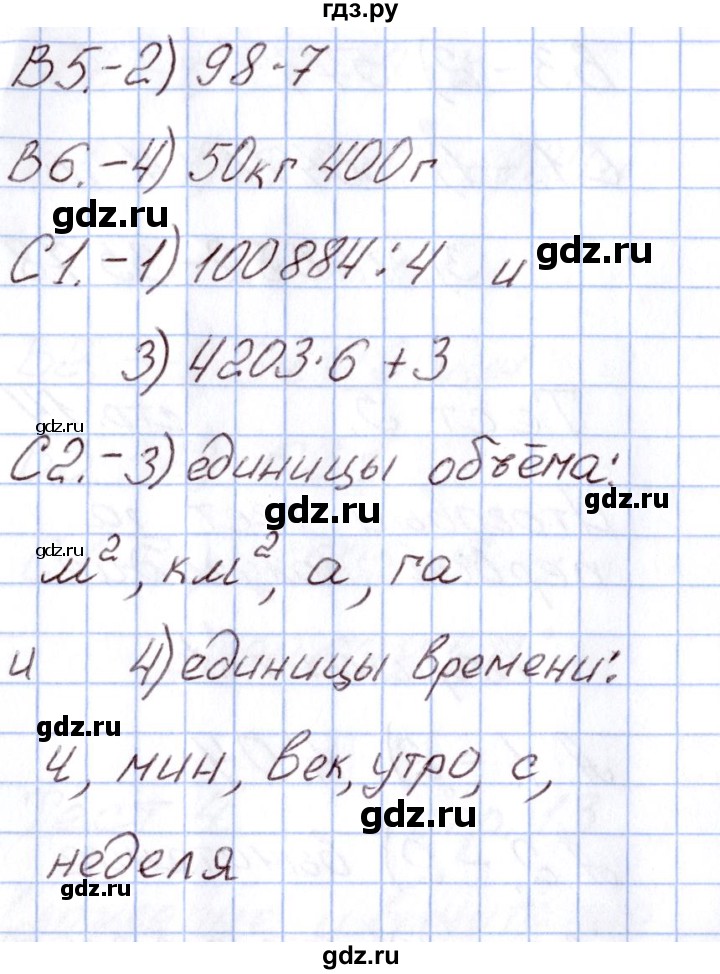 гдз.ру
В5.-2) 98·7
В6.-4) 50кг 400г
gdz.ru
С1.-1) 100884:4 и
gdz.ru
3) 4203·6+3
gdz.ru
С2.-3) единицы объёма:
gdz.ru
gdz.ru
gdz.ru
м², км², а, га
и 4) единицы времени:
gdz.ru
ч, мин, век, утро, с,
gdz.ru
неделя
gdz.ru
gdz.ru